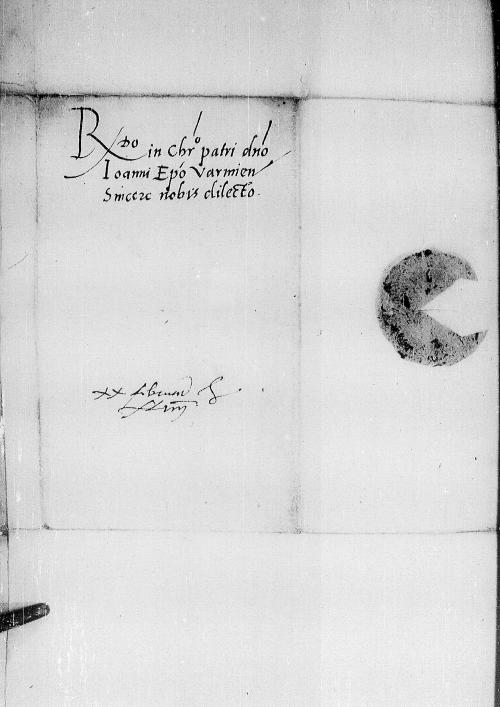 Rdo in Chro patri dno
Ioanni Epo Varmien
Sincere nobis dilecto.
xx